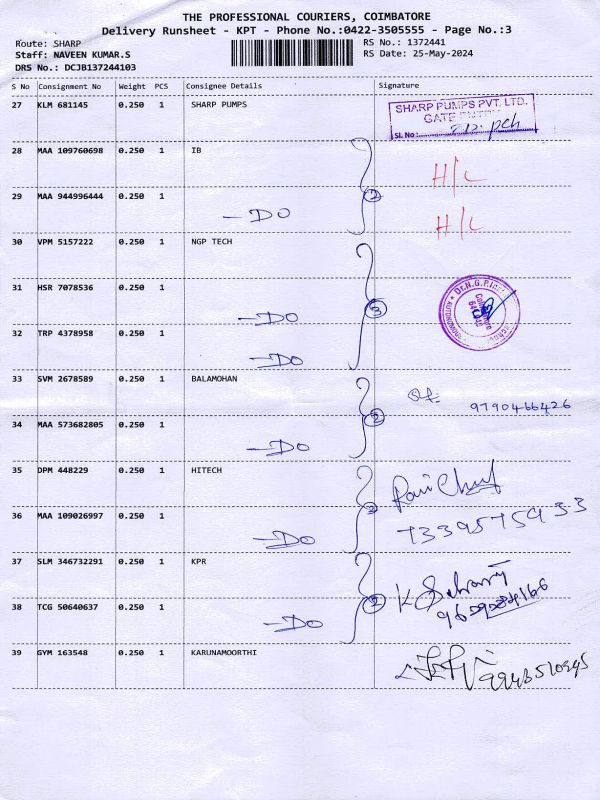 THE PROFESSIONAL COURIERS, COIMBATORE
Delivery Runsheet - KPT - Phone No.:0422-3505555 - Page No.:3
Route: SHARP RS No.: 1372441
Staff: NAVEEN KUMAR.S RS Date: 25-May-2024
DRS No.: DCJB137244103
S No Consignment No Weight PCS Consignee Details Signature
27 KLM 681145 0.250 1 SHARP PUMPS
SHARP PUMPS PVT. LTD.
GATE ENTRY
SL No:
28 MAA 109760698 0.250 1 IB H/L
29 MAA 944996444 0.250 1
-DO 2 H/L
30 VPM 5157222 0.250 1 NGP TECH
31 HSR 7078536 0.250 1
-DO 3
32 TRP 4378958 0.250 1
-DO
33 SVM 2678589 0.250 1 BALAMOHAN
9790466426
34 MAA 573682805 0.250 1 2
-DO
35 DPM 448229 0.250 1 HITECH
36 MAA 109026997 0.250 1 2 7339575933
-DO
37 SLM 346732291 0.250 1 KPR
38 TCG 50640637 0.250 1 2
-DO
39 GYM 163548 0.250 1 KARUNAMOORTHI
9943510945